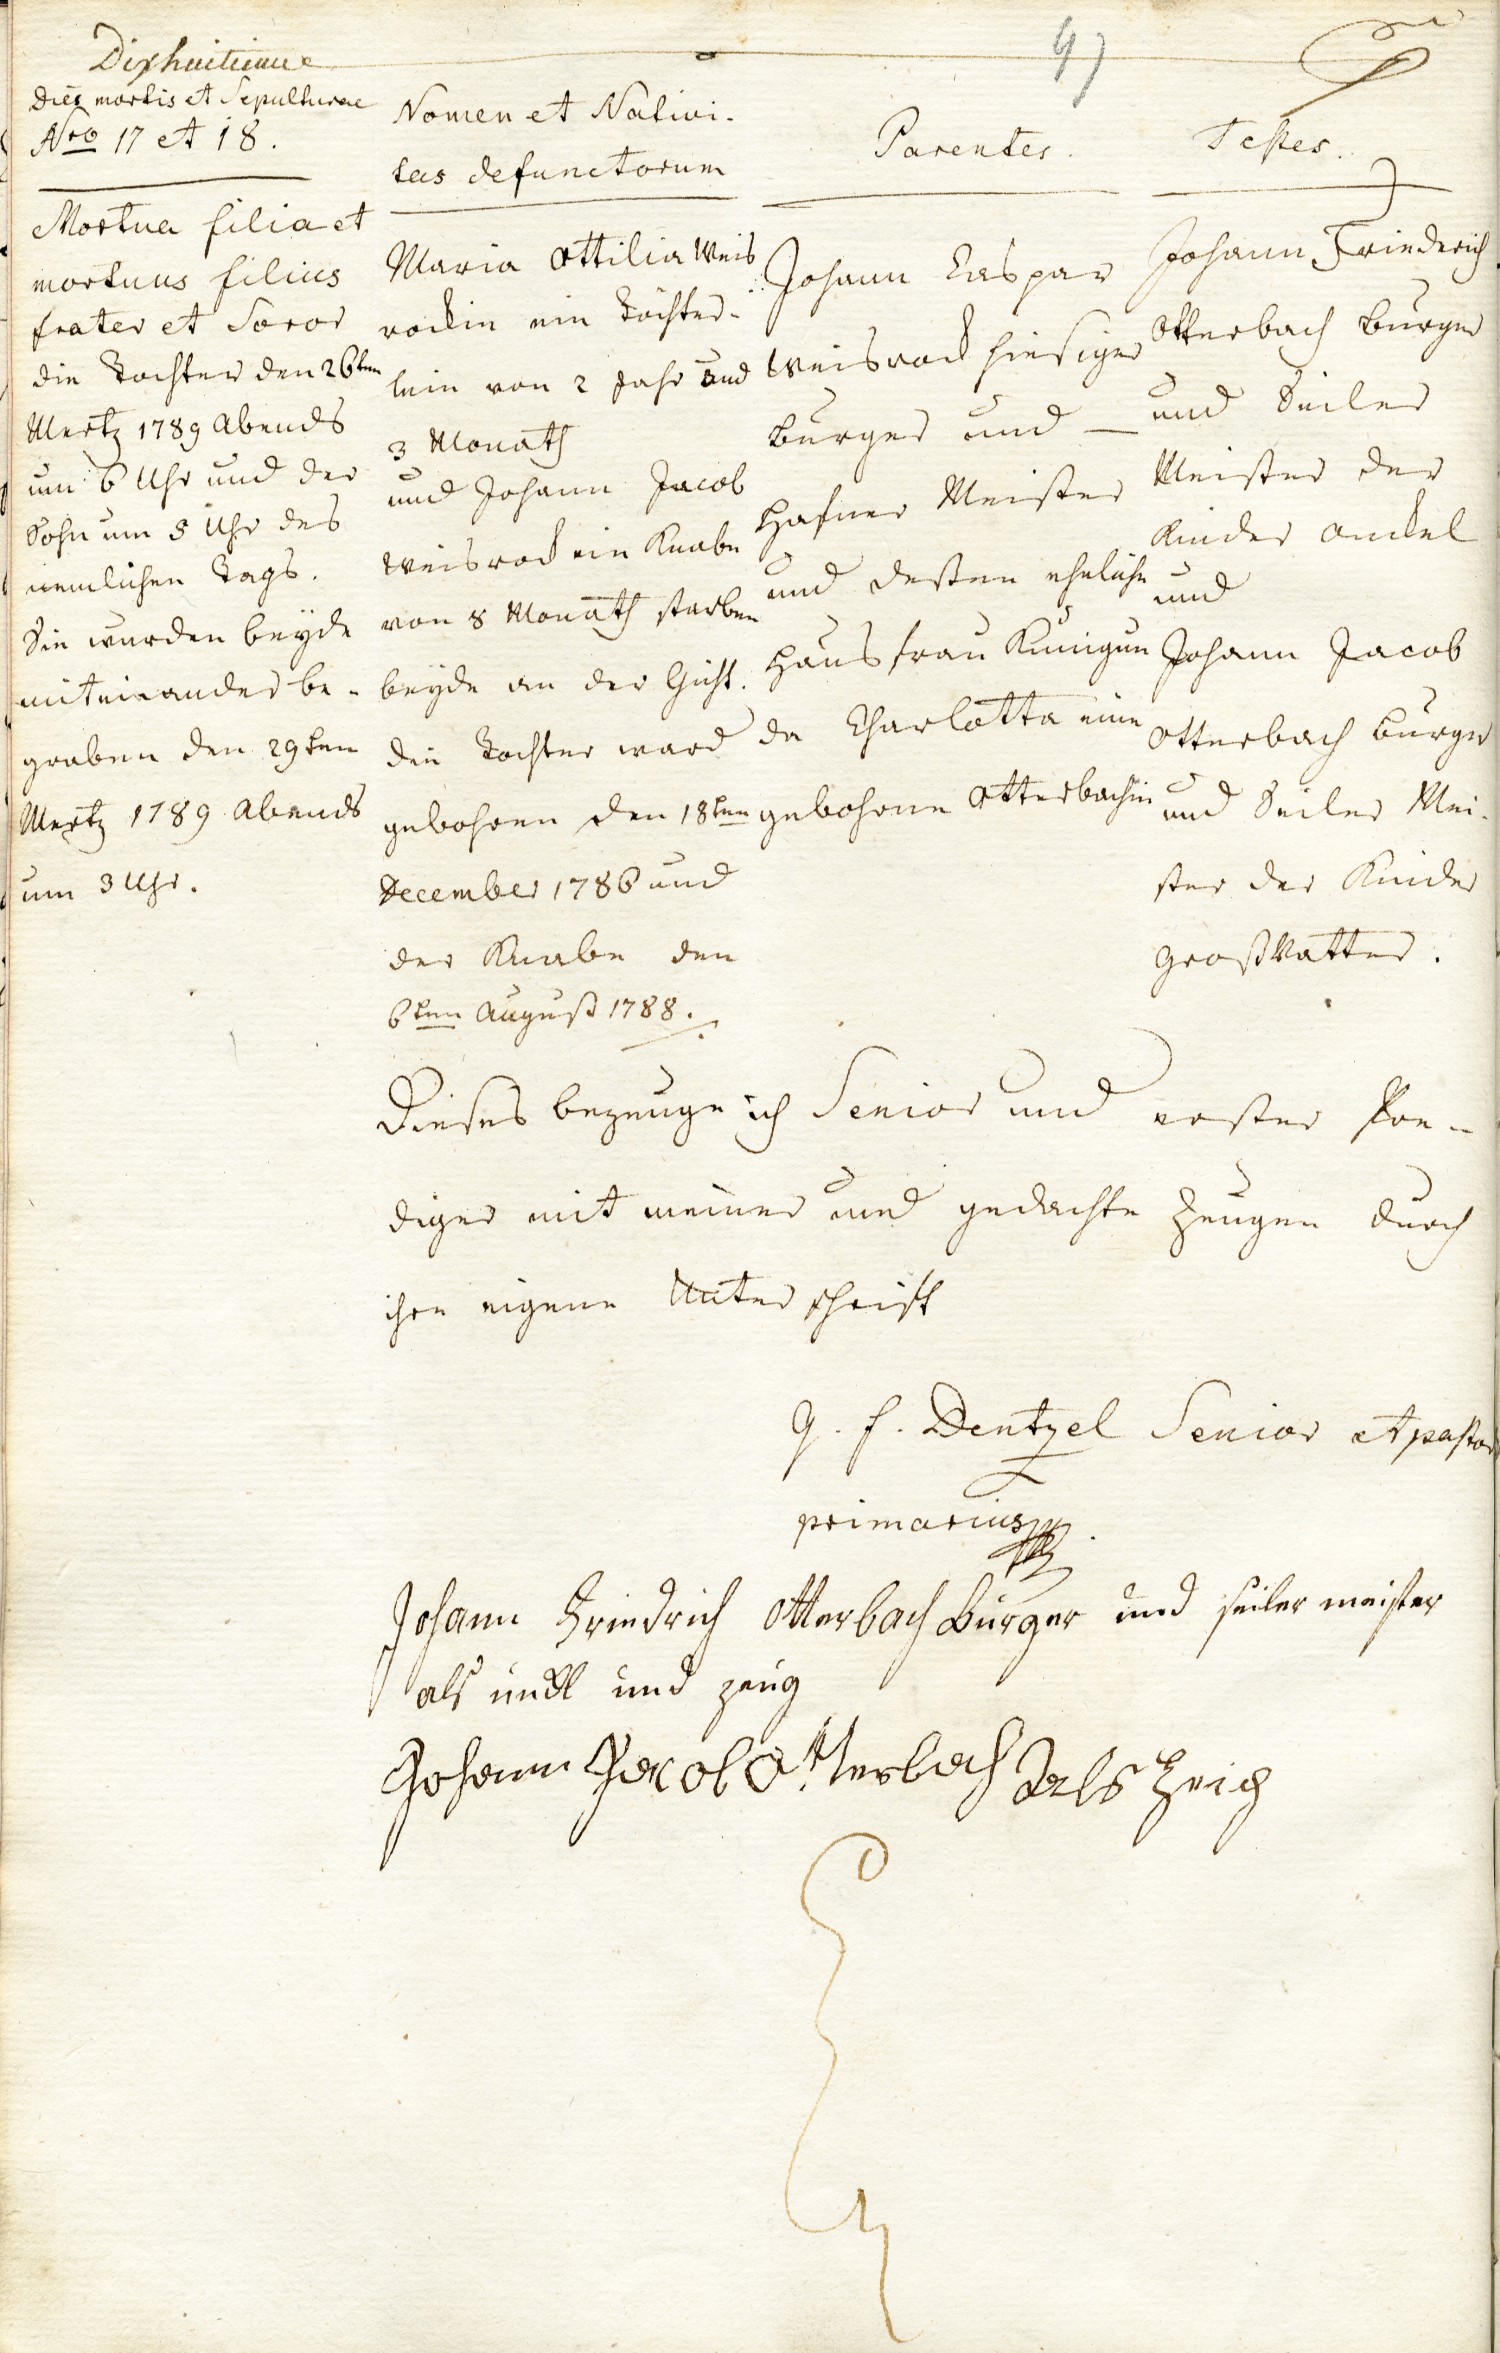 Dixhuitieme
97
Dies mortis et Sepulturae
Nro 17 et 18.
Nomen et Nativi-
tas defunctorum
Parentes.
Testes.
Mortua filia et
mortuus filius
frater et Soror
die Tochter den 26ten
Mertz 1789 Abends
um 6 Uhr und der
Sohn um 5 Uhr des
nemlichen Tags.
Sie wurden beyde
miteinander be-
graben den 29ten
Mertz 1789 Abends
um 3 Uhr.
Maria Ottilia Weis
rockin ein Töchter-
lein von 2 Jahr und
3 Monath
und Johann Jacob
Weisrock ein Knabe
von 8 Monath starben
beyde an der Gicht.
die Tochter ward
gebohren den 18ten
December 1786 und
der Knabe den
6ten August 1788.
Johann Caspar
Weisrock hiesiger
Burger und
Hafner Meister
und dessen eheliche
Hausfrau Kunigun
da Charlotta eine
gebohrne Otterbachin
Johann Friederich
Otterbach Burger
und Seiler
Meister der
Kinder onckel
und
Johann Jacob
Otterbach Burger
und Seiler Mei-
ster der Kinder
Großvatter.
Dieses bezeuge ich Senior und erster Pre-
diger mit meiner und gedachte Zeugen durch
ihre eigene Unterschrift
G. F. Dentzel Senior et pastor
primarius
Johann Friedrich Otterbach Burger und seiler meister
als unckl und zeug
Johann Jacob Otterbach als Zeig